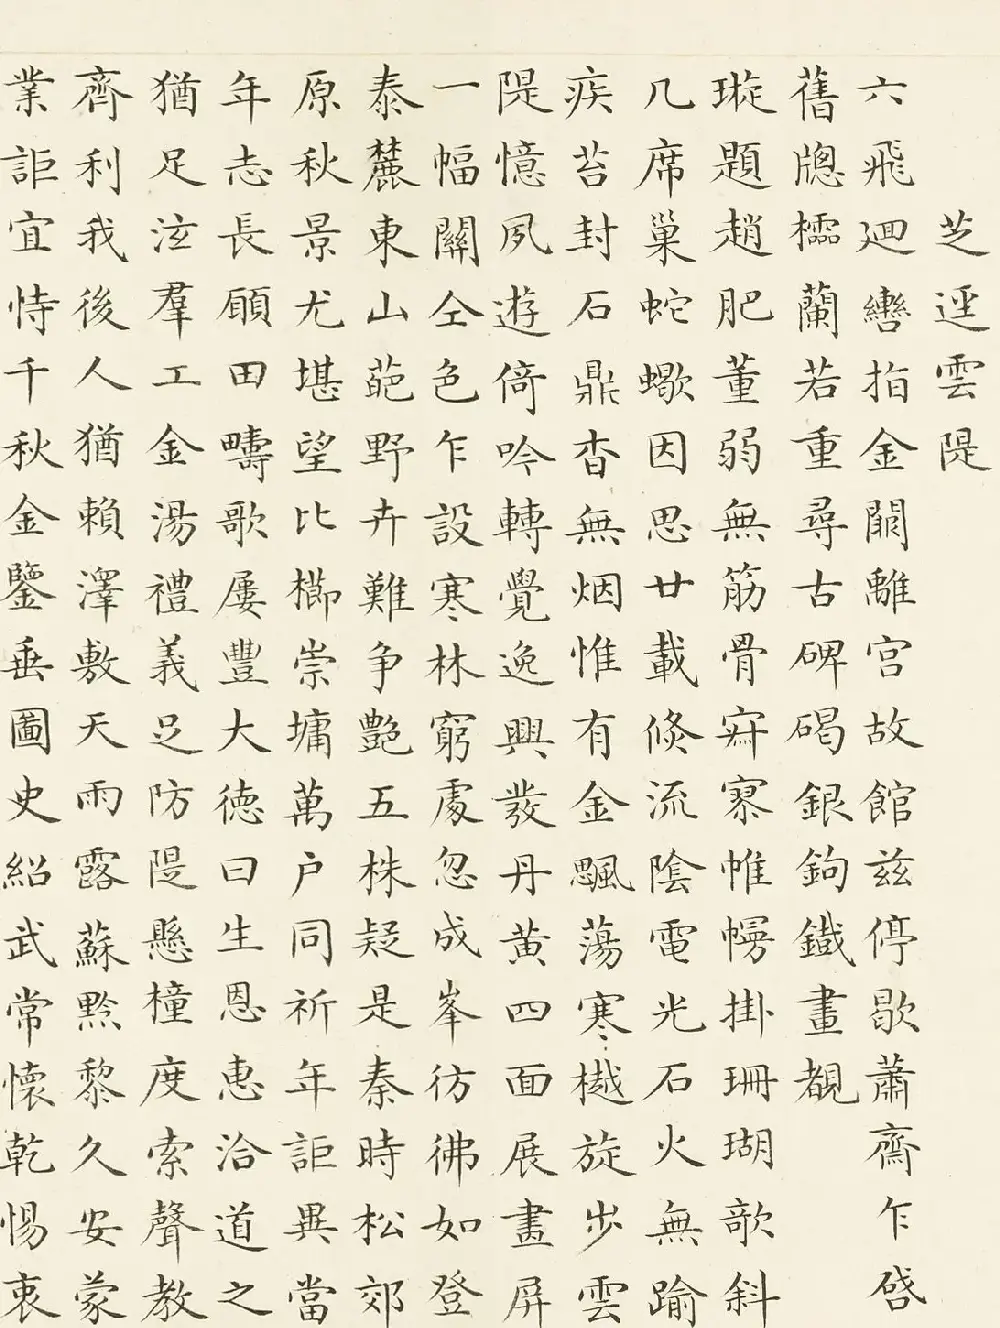 芝逕雲隄
六飛廻轡指金闕離宮故館茲停歇蕭齋乍啓
舊牕櫺蘭若重尋古碑碣銀鉤鐵畫覩
璇題趙肥董弱無筋骨寂寥帷幌掛珊瑚欹斜
几席巢蛇蠍因思廿載倐流陰電光石火無踰
疾苔封石鼎杳無烟惟有金飈蕩寒樾旋步雲
隄憶夙遊倚吟轉覺逸興發丹黃四面展畫屏
一幅關仝色乍設寒林窮處忽成峯彷彿如登
泰麓東山葩野卉難争艷五株疑是秦時松郊
原秋景尤堪望比櫛崇墉萬户同祈年詎異當
年志長願田疇歌屢豐大德曰生恩惠洽道之
猶足泣羣工金湯禮義足防隄懸橦度索聲教
齊利我後人猶賴澤敷天雨露蘇黔黎久安蒙
業詎宜恃千秋金鑒垂圖史紹武常懷乾惕衷